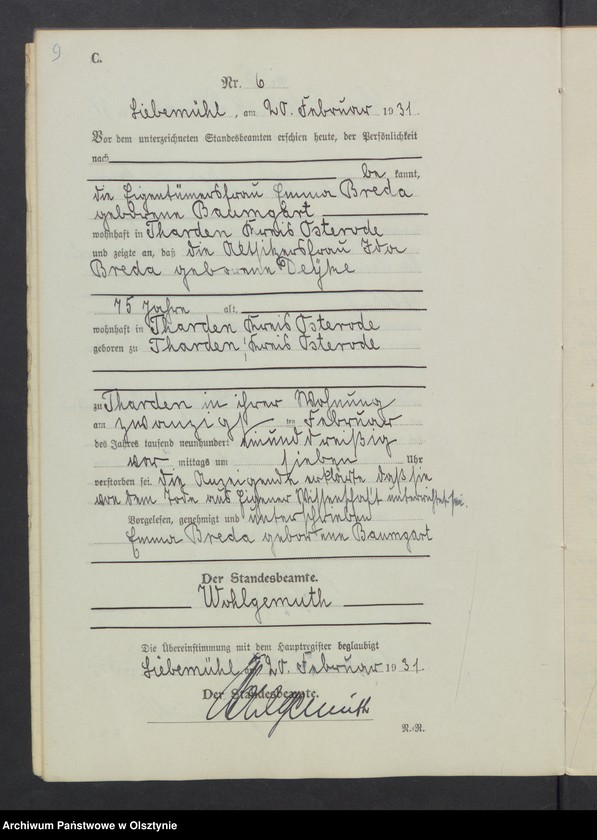 9
C.
Nr. 6
Liebemühl, am 20. Februar 1931.
Vor dem unterzeichneten Standesbeamten erschien heute, der Persönlichkeit
nach
be kannt,
die Eigentümersfrau Emma Breda
geborene Baumgart
wohnhaft in Tharden Kreis Osterode
und zeigte an, daß die Altsitzersfrau Ida
Breda geborene
75 Jahre alt,
wohnhaft in Tharden Kreis Osterode
geboren zu Tharden, Kreis Osterode
zu Tharden in ihrer Wohnung
am zwanzigsten Februar
des Jahres tausend neunhundert einunddreißig
vor mittags um sieben Uhr
verstorben sei. Die Anzeigende erklärte daß sie
von dem Tode aus eigener Wissenschaft unterrichtet sei.
Vorgelesen, genehmigt und unterschrieben
Emma Breda geborene Baumgart
Der Standesbeamte.
Wohlgemuth
Die Übereinstimmung mit dem Hauptregister beglaubigt
Liebemühl, 20. Februar 1931.
Der Standesbeamte.
Wohlgemuth
R.-R.
Archiwum Państwowe w Olsztynie